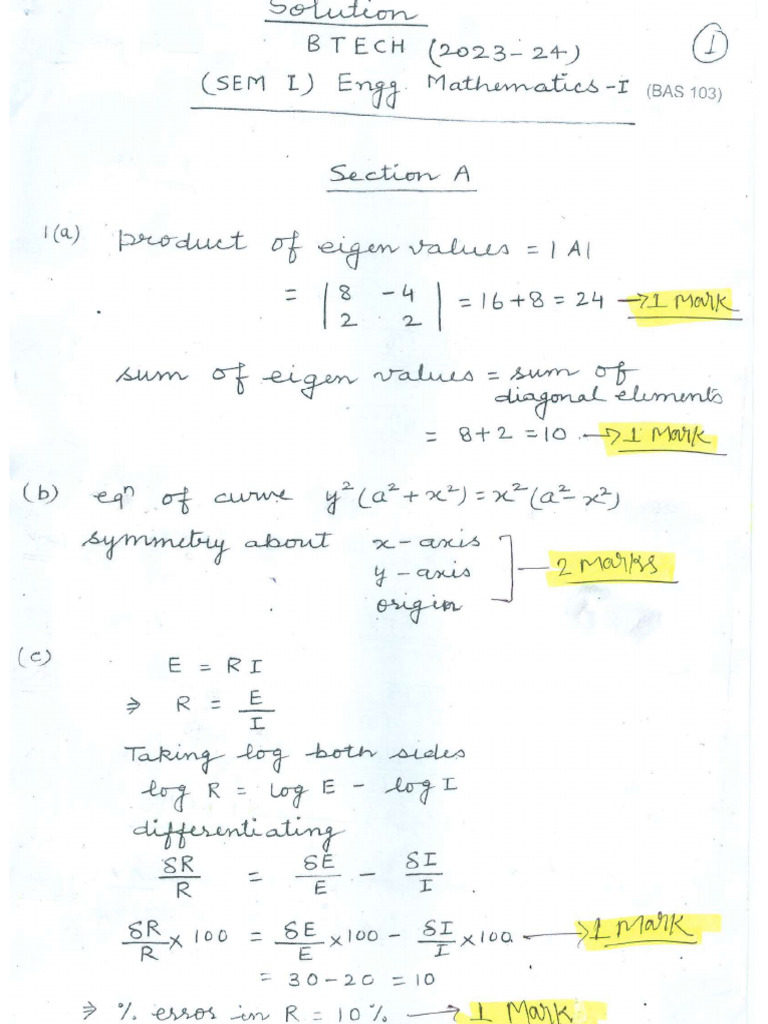 Solution
BTECH (2023-24)
①
(SEM I) Engg. Mathematics-I (BAS 103)
Section A
1(a) product of eigen values = |A|
= | 8 -4 | = 16+8 = 24 → 1 Mark
| 2 2 |
sum of eigen values = sum of
diagonal elements
= 8+2 = 10 → 1 Mark
(b) eqⁿ of curve y²(a²+x²) = x²(a²-x²)
symmetry about x-axis
y-axis — 2 Marks
origin
(c)
E = RI
⇒ R = E/I
Taking log both sides
log R = log E - log I
differentiating
δR/R = δE/E - δI/I
δR/R × 100 = δE/E × 100 - δI/I × 100 → 1 Mark
= 30-20 = 10
⇒ % error in R = 10% → 1 Mark